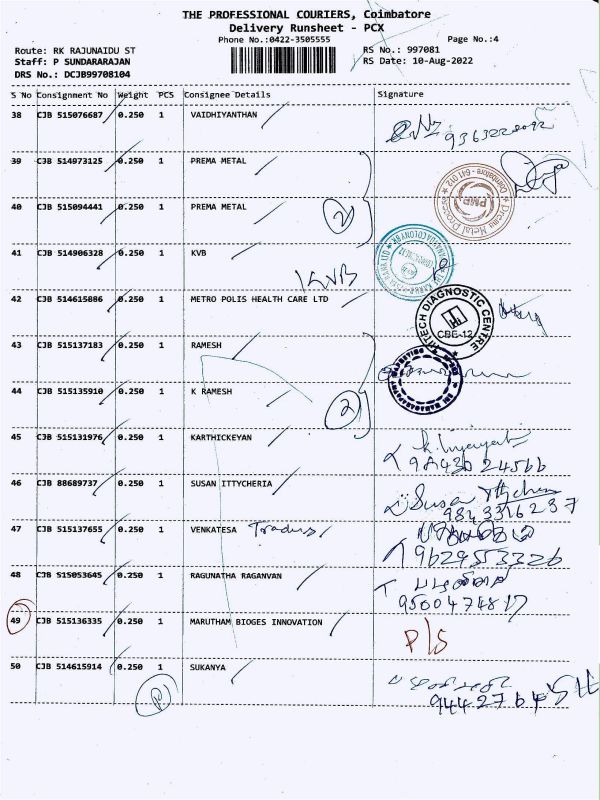 THE PROFESSIONAL COURIERS, Coimbatore
Delivery Runsheet - PCX
Phone No.:0422-3505555
Page No.:4
Route: RK RAJUNAIDU ST
RS No.: 997081
Staff: P SUNDARARAJAN
RS Date: 10-Aug-2022
DRS No.: DCJB99708104
S No Consignment No Weight PCS Consignee Details Signature
38 CJB 515076687 0.250 1 VAIDHIYANTHAN
39 CJB 514973125 0.250 1 PREMA METAL
40 CJB 515094441 0.250 1 PREMA METAL
2
41 CJB 514906328 0.250 1 KVB
KVB
42 CJB 514615886 0.250 1 METRO POLIS HEALTH CARE LTD
HITECH DIAGNOSTIC CENTRE
CBE-12
43 CJB 515137183 0.250 1 RAMESH
44 CJB 515135910 0.250 1 K RAMESH
2
45 CJB 515131976 0.250 1 KARTHICKEYAN
46 CJB 88689737 0.250 1 SUSAN ITTYCHERIA
Susan
9843316237
47 CJB 515137655 0.250 1 VENKATESA Traders
9629553326
48 CJB 515053645 0.250 1 RAGUNATHA RAGANVAN
9500474817
49 CJB 515136335 0.250 1 MARUTHAM BIOGES INNOVATION
P/S
50 CJB 514615914 0.250 1 SUKANYA